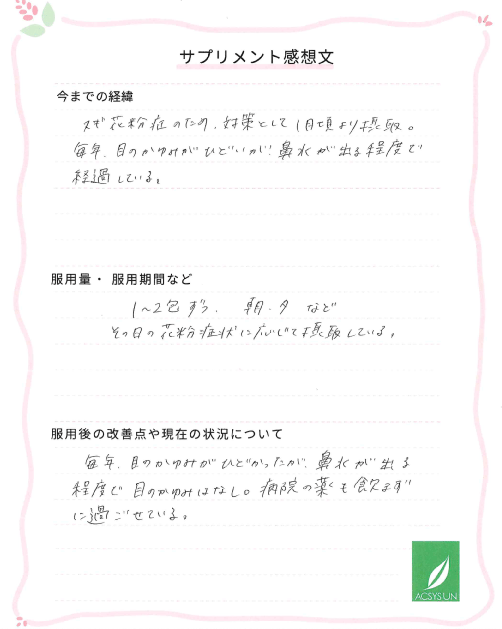 サプリメント感想文
今までの経緯
花粉症のため、対策として1月頃より摂取。
毎年、目のかゆみがひどいが、鼻水が出る程度で
経過している。
服用量・ 服用期間など
1~2包ずつ、 朝・夕 など
その日の花粉症状に応じて摂取している。
服用後の改善点や現在の状況について
毎年、目のかゆみがひどかったが、鼻水が出る
程度で目のかゆみはなし。病院の薬も飲まず
に過ごせている。
ACSYSUN